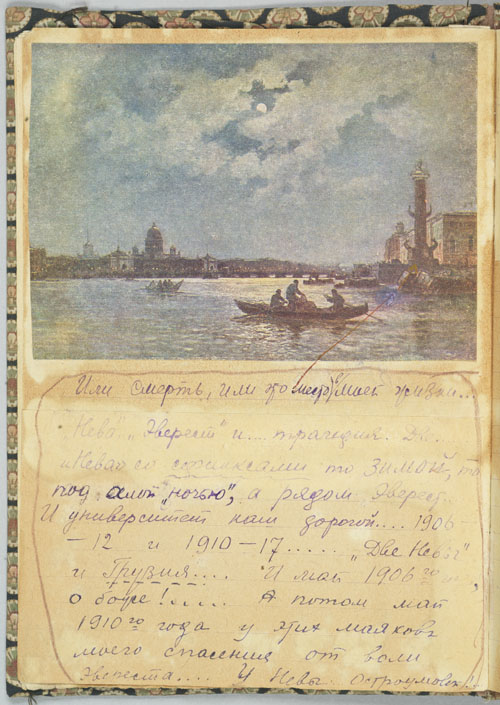 Или смерть, или моей жизни...
"Нева" "Эверест" и... трагедия. Две
"Нева" со сфинксами то зимой, то
под "ночью", а рядом Эверест.
И университет наш дорогой.... 1906-
-12 и 1910-17..... "Две Невы"
и Грузия.... И май 1906 го
о боже!..... А потом май
1910 го года у этих маяков
моего спасения от воли
Эвереста.... И Невы Остроумовой!!